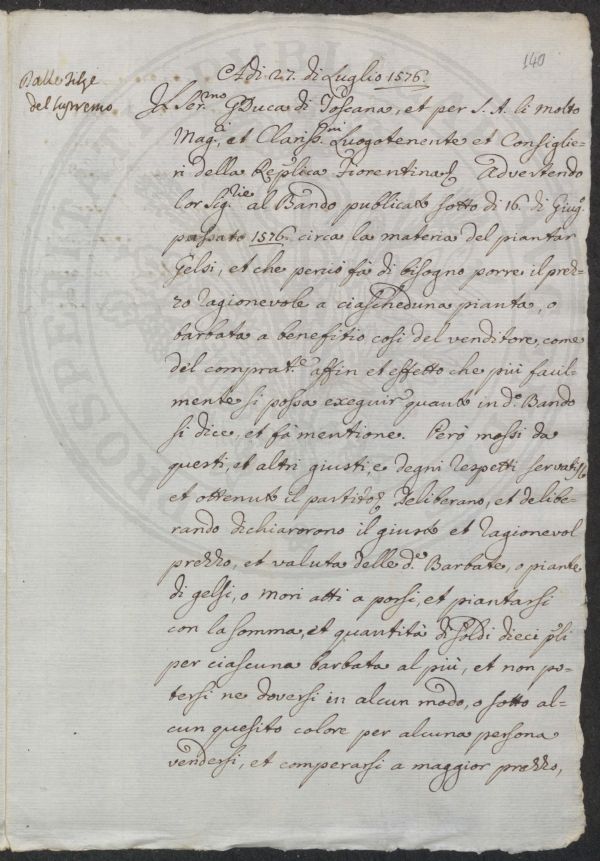 140
Dalle filze
del Supremo
A dì 27. di Luglio 1576.
Il Ser.mo G Duca di Toscana, et per S. A. li molto
Mag.ci et Claris.mi Luogotenente et Consiglie=
ri della Rep.lica Fiorentina Advertendo
lor Sig.rie al Bando publicato sotto dì 16. di Giug.o
passato 1576. circa la materia del piantar
Gelsi, et che perciò fà di bisogno porre il prez=
zo ragionevole a ciascheduna pianta, o
barbata a benefitio così del venditore, come
del comprat.re affin et effetto che più facil=
mente si possa exeguir quanto in d.o Bando
si dice, et fà mentione. Però mossi da
questi, et altri giusti, e degni respetti servatis
et ottenuto il partito Deliberano, et delibe=
rando dichiarorono il giusto et ragionevol
prezzo, et valuta delle d.e Barbate, o piante
di gelsi, o mori atti a porsi, et piantarsi
con la somma, et quantità di soldi dieci p.li
per ciascuna barbata al più, et non po=
tersi ne doversi in alcun modo, o sotto al=
cun quesito colore per alcuna persona
vendersi, et comperarsi a maggior prezzo,